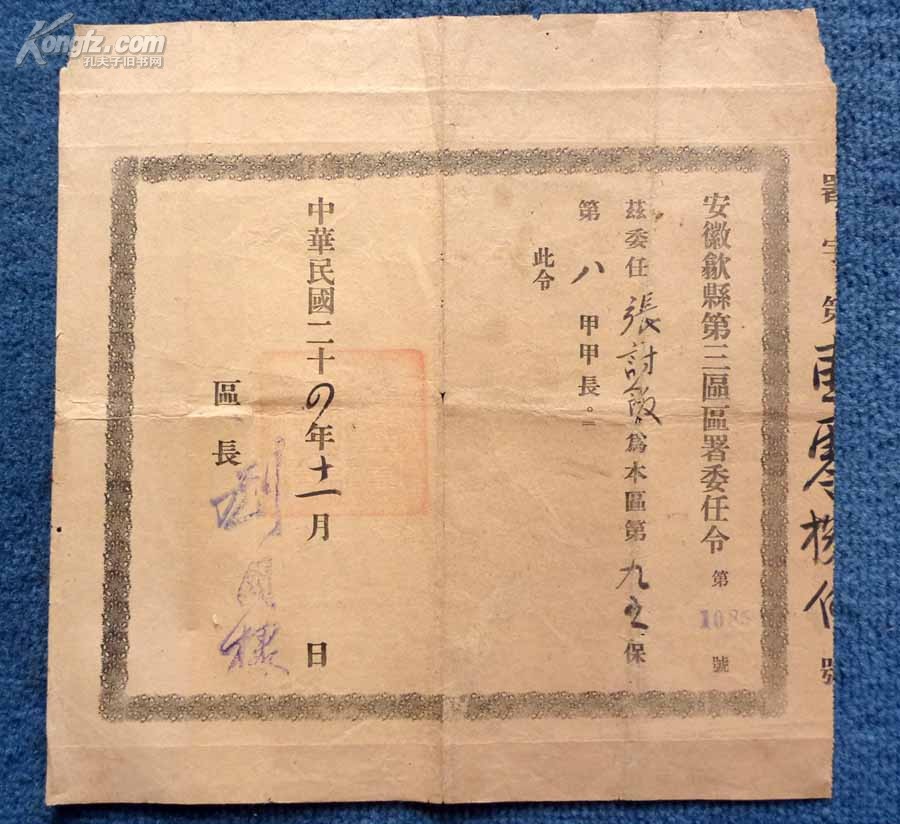 Kongfz.com
孔夫子旧书网
安徽歙縣第三區區署委任令 第1085號
茲委任張討飯為本區第九五保
第八甲甲長。
此令
中華民國二十四年十一月 日
區長